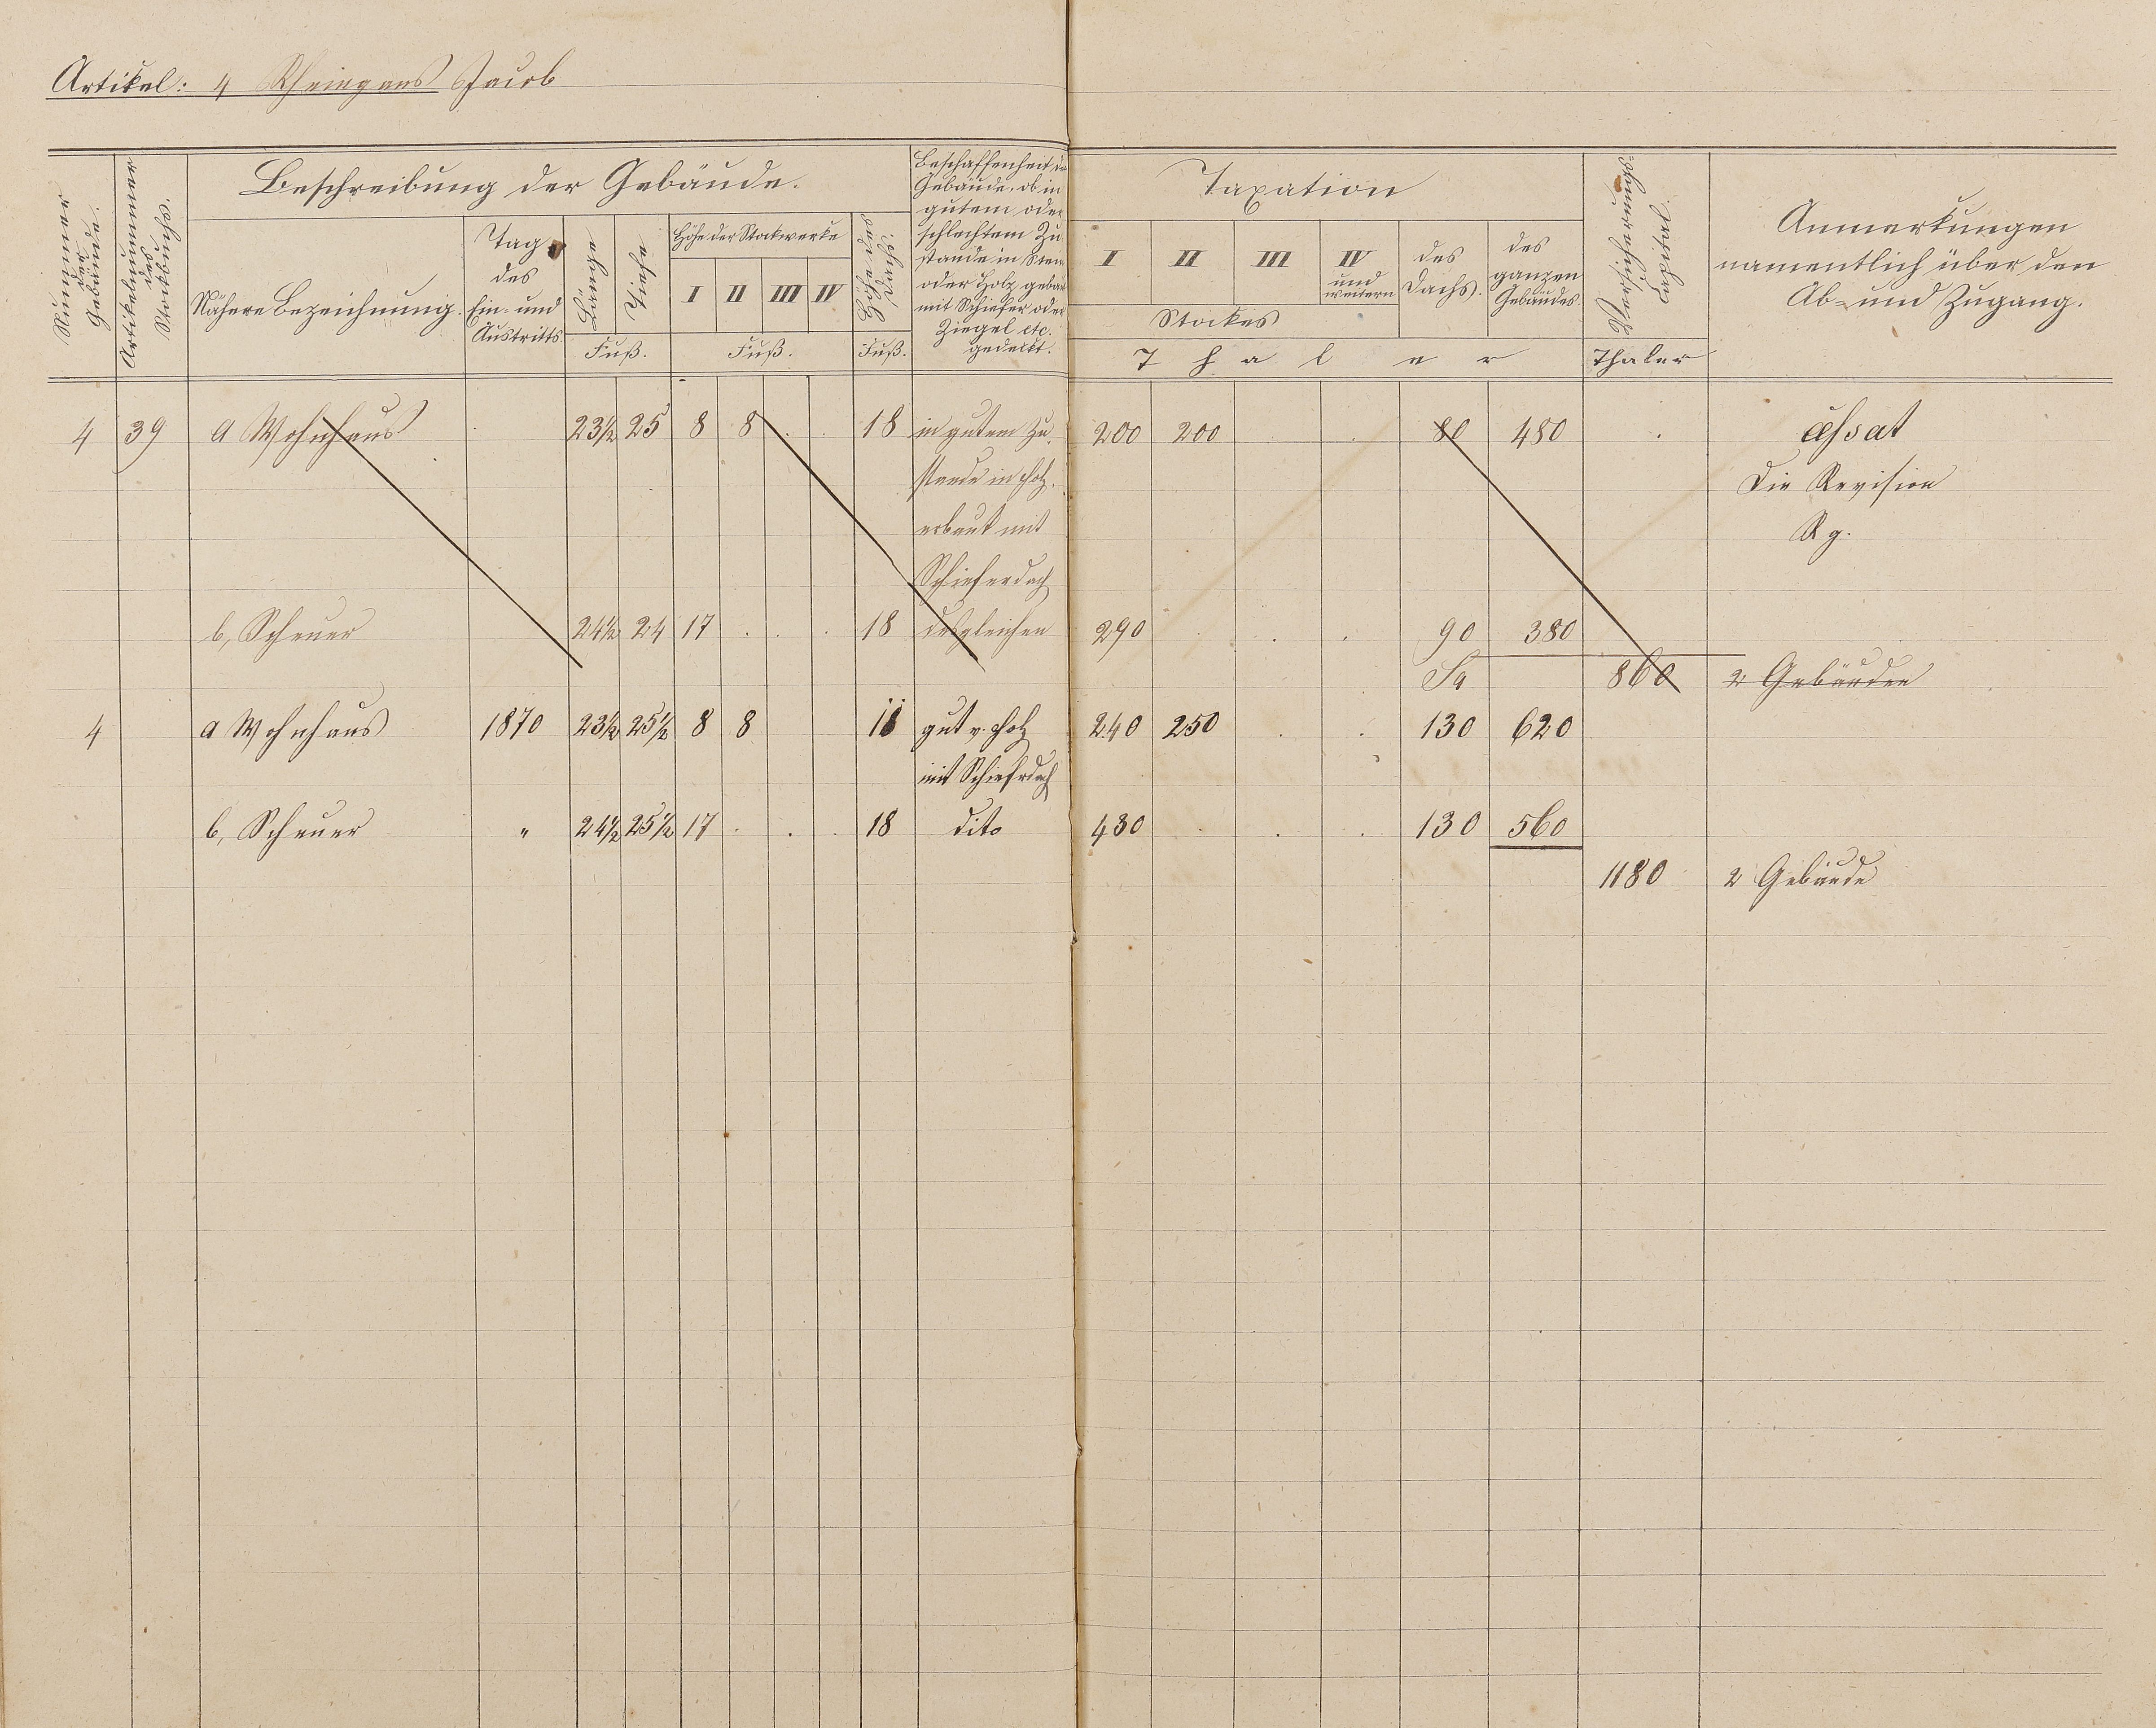 Artikel: 4 Rheingans Jacob
Nummer der Gebäude.
Artikelnummer des Stockbuchs.
Beschreibung der Gebäude.
Nähere Bezeichnung.
Tag des Ein- und Austritts
Länge
Tiefe
Fuß.
Höhe der Stockwerke
I II III IV
Fuß.
Höhe des Dachs.
Fuß.
Beschaffenheit der
Gebäude, ob in
gutem oder
schlechtem Zu
stande in Stein
oder Holz gebaut
mit Schiefer oder
Ziegel etc.
gedeckt.
Taxation
I II III IV und weitern
Stockes
des Dachs.
des ganzen Gebäudes.
Thaler
Versicherungs Capital.
Thaler
Anmerkungen
namentlich über den
Ab- und Zugang.
4 39 a Wohnhaus 23½ 25 8 8 . . 18 in gutem Zu 200 200 . . 80 480 .
stande in Holz. Die Revision
erbaut mit Rg.
Schieferdach
b, Scheuer 24½ 24 17 . . . 18 desgleichen 290 . . . 90 380
Sa 860 2 Gebäuden
4 a Wohnhaus 1870 23½ 25½ 8 8 18 gut v. Holz 240 250 . . 130 620
mit Schieferdach
b, Scheuer " 24½ 25½ 17 . . . 18 dito 430 . . . 130 560
1180 2 Gebäude